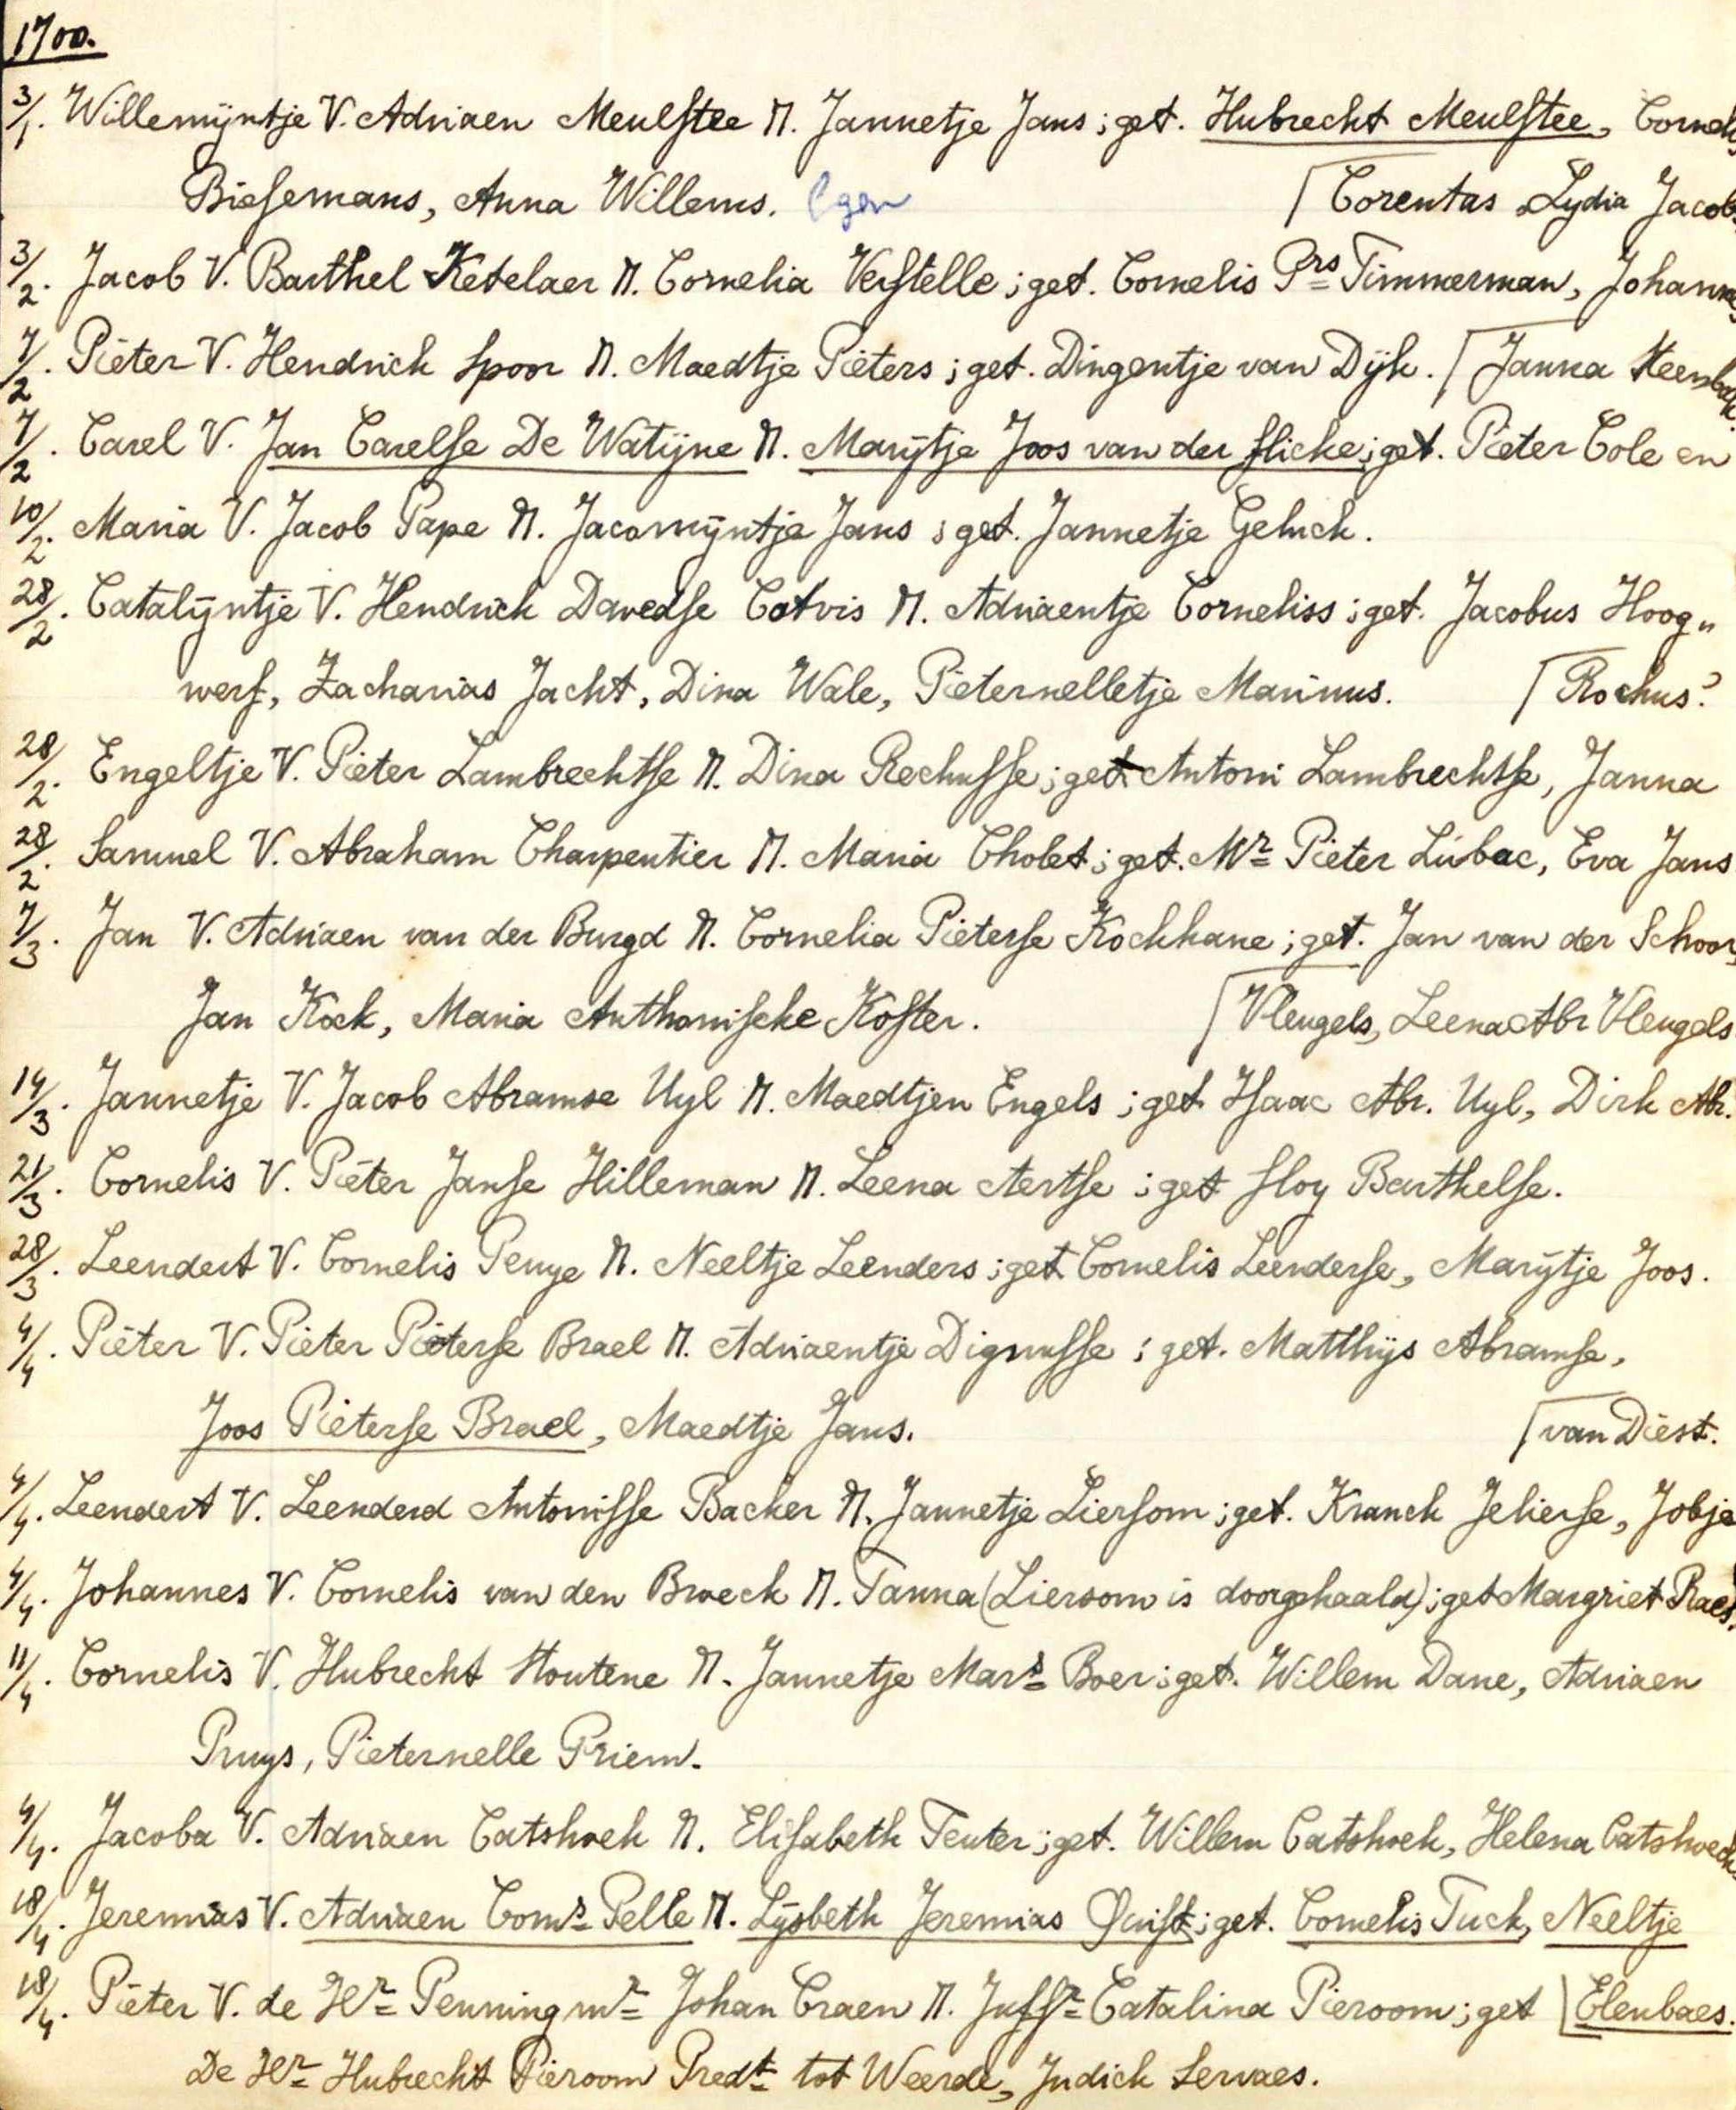 1700.
3/1. Willemijntje V. Adriaen Meulstee M. Jannetje Jans ; get. Hubrecht Meulstee, Cornelis
Biesemans, Anna Willems. ⌈Corentas Lydia Jacobs
3/2. Jacob V. Barthel Ketelaer M. Cornelia Verstelle ; get. Cornelis Prs Timmerman, Johannes
7/2. Pieter V. Hendrick Spoor M. Maedtje Pieters ; get. Dingentje van Dijk. ⌈Janna
7/2. Carel V. Jan Carelse De Watijne M. Marijtje Joos van der Slicke ; get. Pieter Cole en
10/2. Maria V. Jacob Pape M. Jacomijntje Jans ; get. Jannetje Geluck.
28/2. Catalijntje V. Hendrick Davedse Catvis M. Adriaentje Corneliss ; get. Jacobus Hoog„
werf, Zacharias Jacht, Dina Wale, Pieternelletje Marinus. ⌈Rochus?
28/2. Engeltje V. Pieter Lambrechtse M. Dina Rechusse ; get. Antoni Lambrechtse, Janna
28/2. Samuel V. Abraham Charpentier M. Maria Cholet ; get. Mr Pieter Lúbac, Eva Jans
7/3. Jan V. Adriaen van der Burgd M. Cornelia Pieterse Kockhane ; get. Jan van der Schoor,
Jan Kock, Maria Anthonische Koster. ⌈Vleugels, Leena Abr Vleugels
14/3. Jannetje V. Jacob Abramse Uyl M. Maedtjen Engels ; get Isaac Abr. Uyl, Dirk Abr.
21/3. Cornelis V. Pieter Janse Hilleman M. Leena Aertse ; get Sloy Barthelse.
28/3. Leendert V. Cornelis Penye M. Neeltje Leenders ; get Cornelis Leenderse, Marijtje Joos.
4/4. Pieter V. Pieter Pieterse Brael M. Adriaentje Dignusse ; get. Matthijs Abramse,
Joos Pieterse Brael, Maedtje Jans. ⌈van Diest.
4/4. Leendert V. Leenderd Antonisse Backer M. Jannetje Liersom ; get. Kranck Jelierse, Jobje
4/4. Johannes V. Cornelis van den Broeck M. Tanna (Liersom is doorgehaald) ; get Margriet Raes.
11/4. Cornelis V. Hubrecht Houtene M. Jannetje Mars Boer ; get. Willem Dane, Adriaen
Pruys, Pieternelle Priem.
4/4. Jacoba V. Adriaen Catshoek M. Elisabeth Teuter ; get. Willem Catshoek, Helena Catshoeck
18/4. Jeremias V. Adriaen Corns Pelle M. Lijsbeth Jeremias Quist ; get. Cornelis Tuck, Neeltje
18/4. Pieter V. de Hr Penningmr Johan Craen M. Juffr Catalina Pieroom ; get ⌊Elenbaes.
De Hr Hubrecht Pieroom Predt tot Weerde, Judick Servaes.